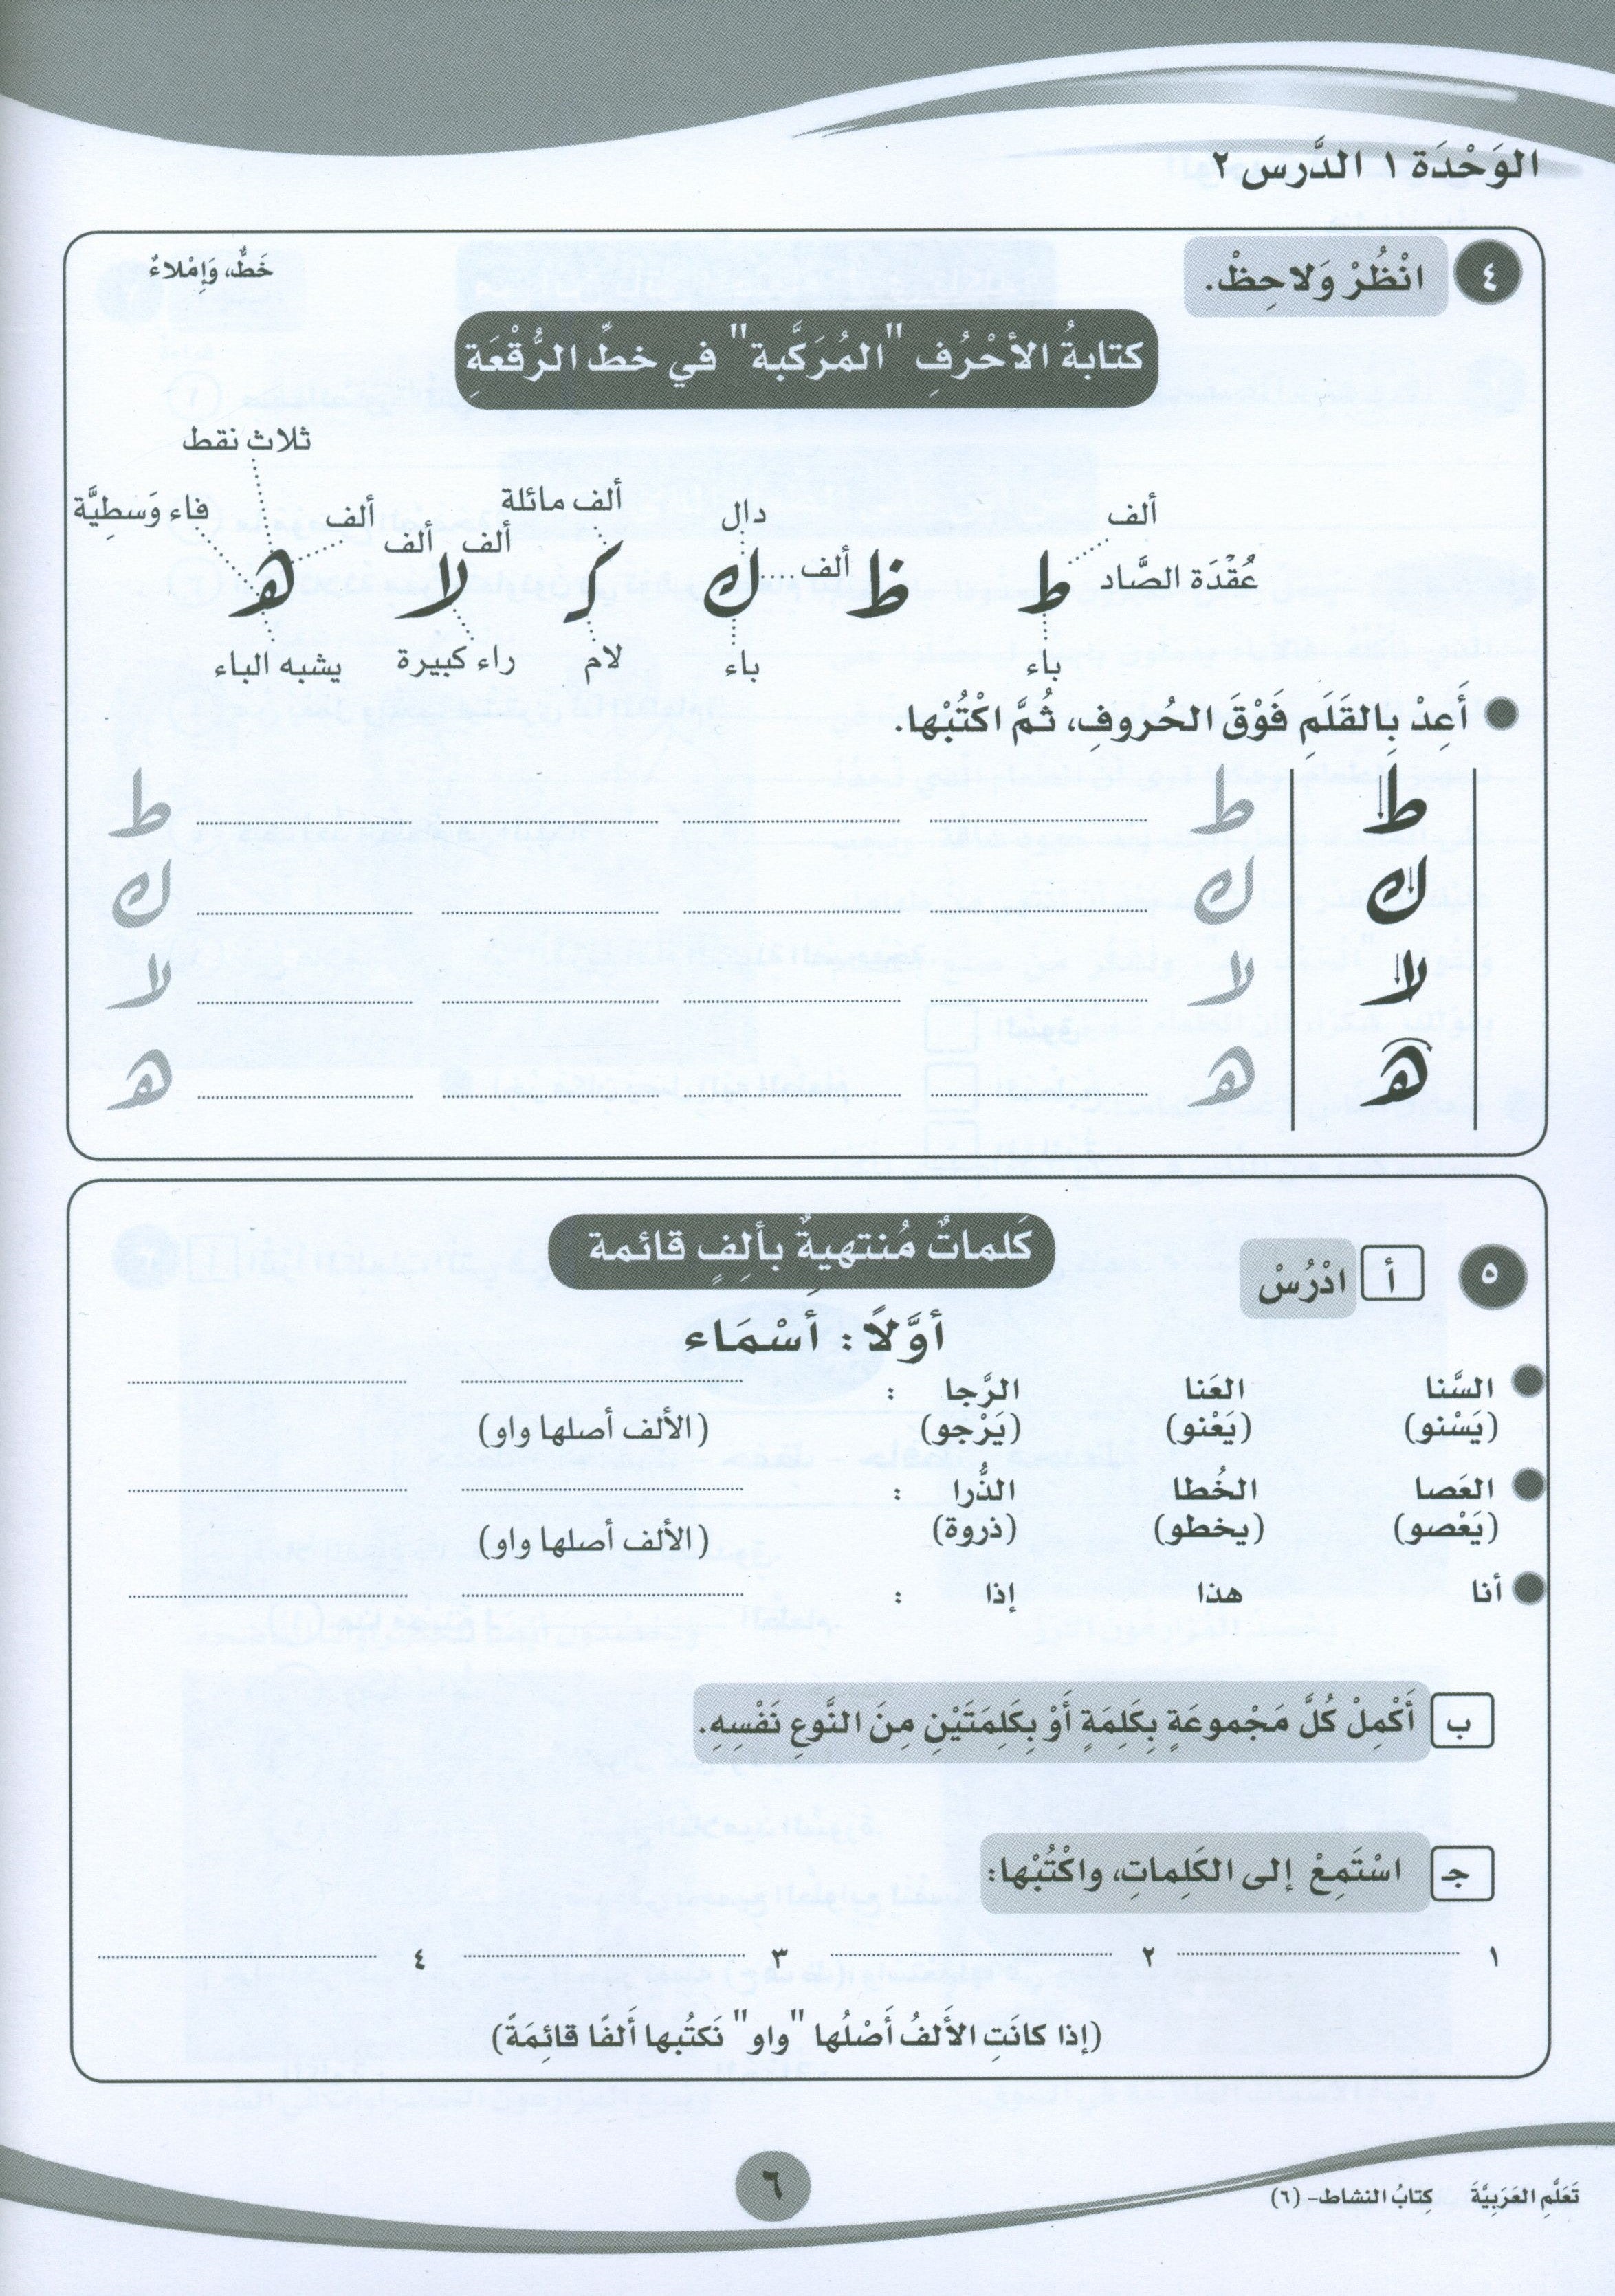 الوَحْدَة ١ الدَّرس ٢
٤ انْظُرْ وَلاحِظْ.
خَطٌّ، وَإِمْلاءٌ
كتابةُ الأحْرُفِ "المُرَكَّبة" في خطِّ الرُّقْعَةِ
ثلاث نقط
ألف دال ألف مائلة ألف ألف ألف فاء وَسطِيَّة
عُقْدَة الصَّاد ط ظ ألف ك ك لا هـ
باء باء لام راء كبيرة يشبه الباء
أَعِدْ بِالقَلَمِ فَوْقَ الحُروفِ، ثُمَّ اكْتُبْها.
ط ط ط
ك ك ك
لا لا لا
هـ هـ هـ
٥ أ ادْرُسْ
كَلماتٌ مُنتهيةٌ بألِفٍ قائمة
أوَّلاً: أسْمَاء
السَّنا العَنا الرَّجا :
(يَسْنو) (يَعْنو) (يَرْجو) (الألف أصلها واو)
العَصا الخُطا الذُّرا :
(يَعْصو) (يخطو) (ذروة) (الألف أصلها واو)
أنا هذا إذا :
ب أَكْمِلْ كُلَّ مَجْموعَةٍ بِكَلِمَةٍ أَوْ بِكَلِمَتَيْنِ مِنَ النَّوعِ نَفْسِهِ.
جـ اسْتَمِعْ إلى الكَلِماتِ، واكْتُبْها:
١ ٢ ٣ ٤
(إذا كانَتِ الأَلفُ أَصْلُها "واو" نَكتُبها أَلفًا قائِمَةً)
تَعَلَّمِ العَرَبِيَّةَ كِتابُ النشاط- (٦)
٦